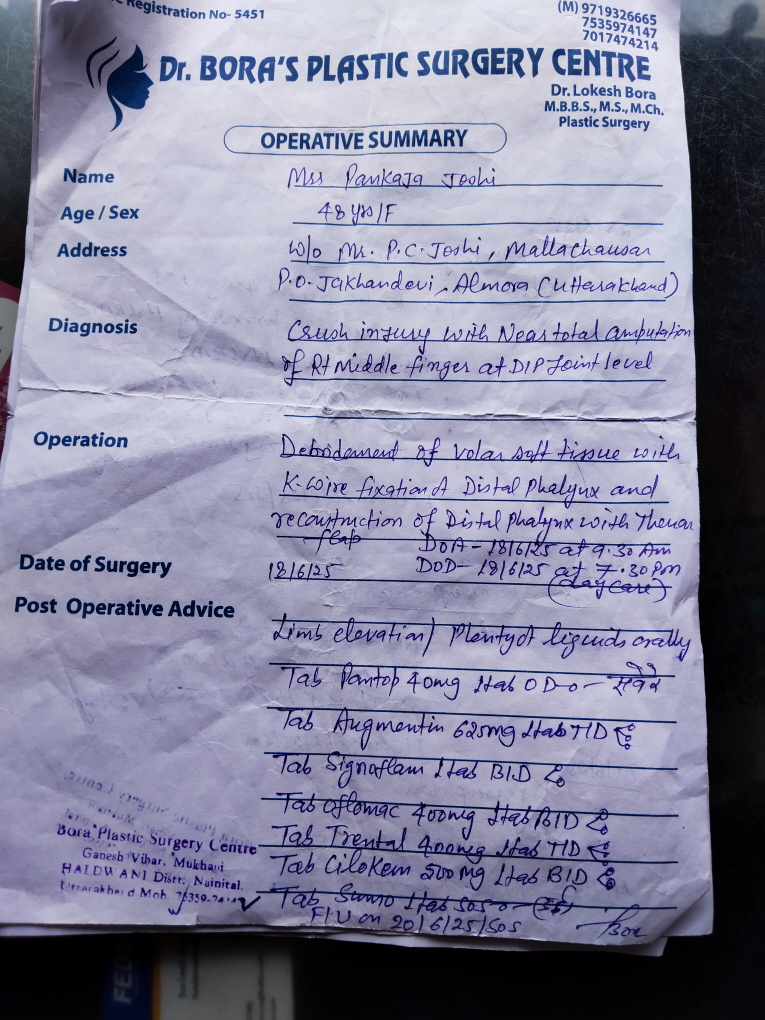 Registration No- 5451
(M) 9719326665
7535974147
7017474214
Dr. BORA'S PLASTIC SURGERY CENTRE
Dr. Lokesh Bora
M.B.B.S., M.S., M.Ch.
Plastic Surgery
OPERATIVE SUMMARY
Name Mrs Pankaja Joshi
Age / Sex 48 yrs/F
Address W/o Mr. P.C. Joshi, Mallachausar
P.O. Jakhandevi, Almora (Uttarakhand)
Diagnosis Crush injury with Near total amputation
of Rt Middle finger at DIP Joint level
Operation Debridement of volar soft tissue with
K-wire fixation of Distal Phalynx and
reconstruction of Distal Phalynx with Thenar
flap DOA - 18/6/25 at 9.30 Am
Date of Surgery 18/6/25 DOD- 18/6/25 at 7.30 Pm
(daycare)
Post Operative Advice
Limb elevation/ Plenty of liquids orally
Tab Pantop 40mg 1tab OD
Tab Augmentin 625mg 1tab TID
Tab Signoflam 1tab BID
Tab Oflomac 400mg 1tab BID
Tab Trental 400mg 1tab TID
Tab Cilokem 500mg 1tab BID
Tab 1tab SOS
F/U on 20/6/25/SOS Bora
Bora Plastic Surgery Centre
Ganesh Vihar, Mukhani
HALDWANI Distt. Nainital.
Uttarakhand Mob.
FED